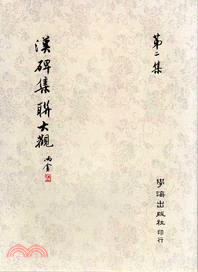 第二集
漢碑集聯大觀
學海出版社 印行